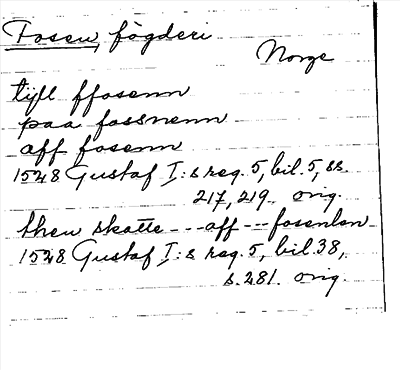 Fosen, fögderi
Norge
tijll ffosenn
paa fossnenn
aff fosenn
1528 Gustaf I:s reg. 5, bil. 5, ss.
217, 219. orig.
then skatte - - - aff - - - fosenlen
1528 Gustaf I:s reg. 5, bil. 38,
s. 281. orig.